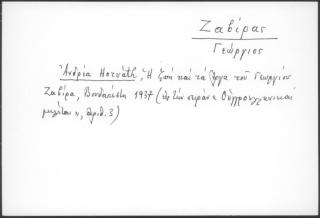 Ζαβίρας
Γεώργιος
Ἀνδρέα Horváth, Ἡ ζωὴ καὶ τὰ ἔργα τοῦ Γεωργίου
Ζαβίρα, Βουδαπέστη 1937 (εἰς τὴν σειρὰν « Οὑγγροελληνικαὶ
μελέται », ἀριθ. 3)